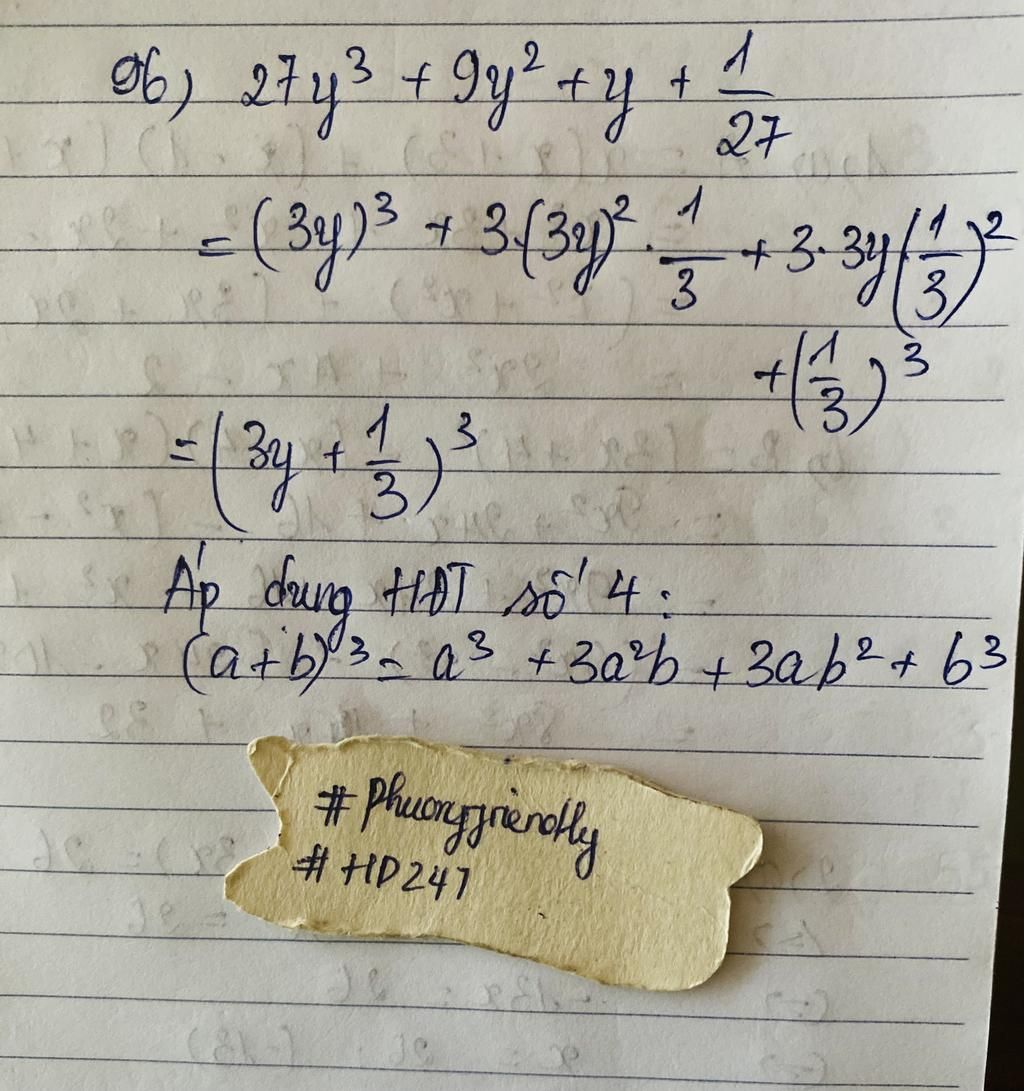 96) 27y³ + 9y² + y + 1/27
= (3y)³ + 3.(3y)² . 1/3 + 3. 3y(1/3)²
+ (1/3)³
= (3y + 1/3)³
Áp dụng HĐT số 4 :
(a+b)³ = a³ + 3a²b + 3ab² + b³
# Phuongfriendly
# HD247